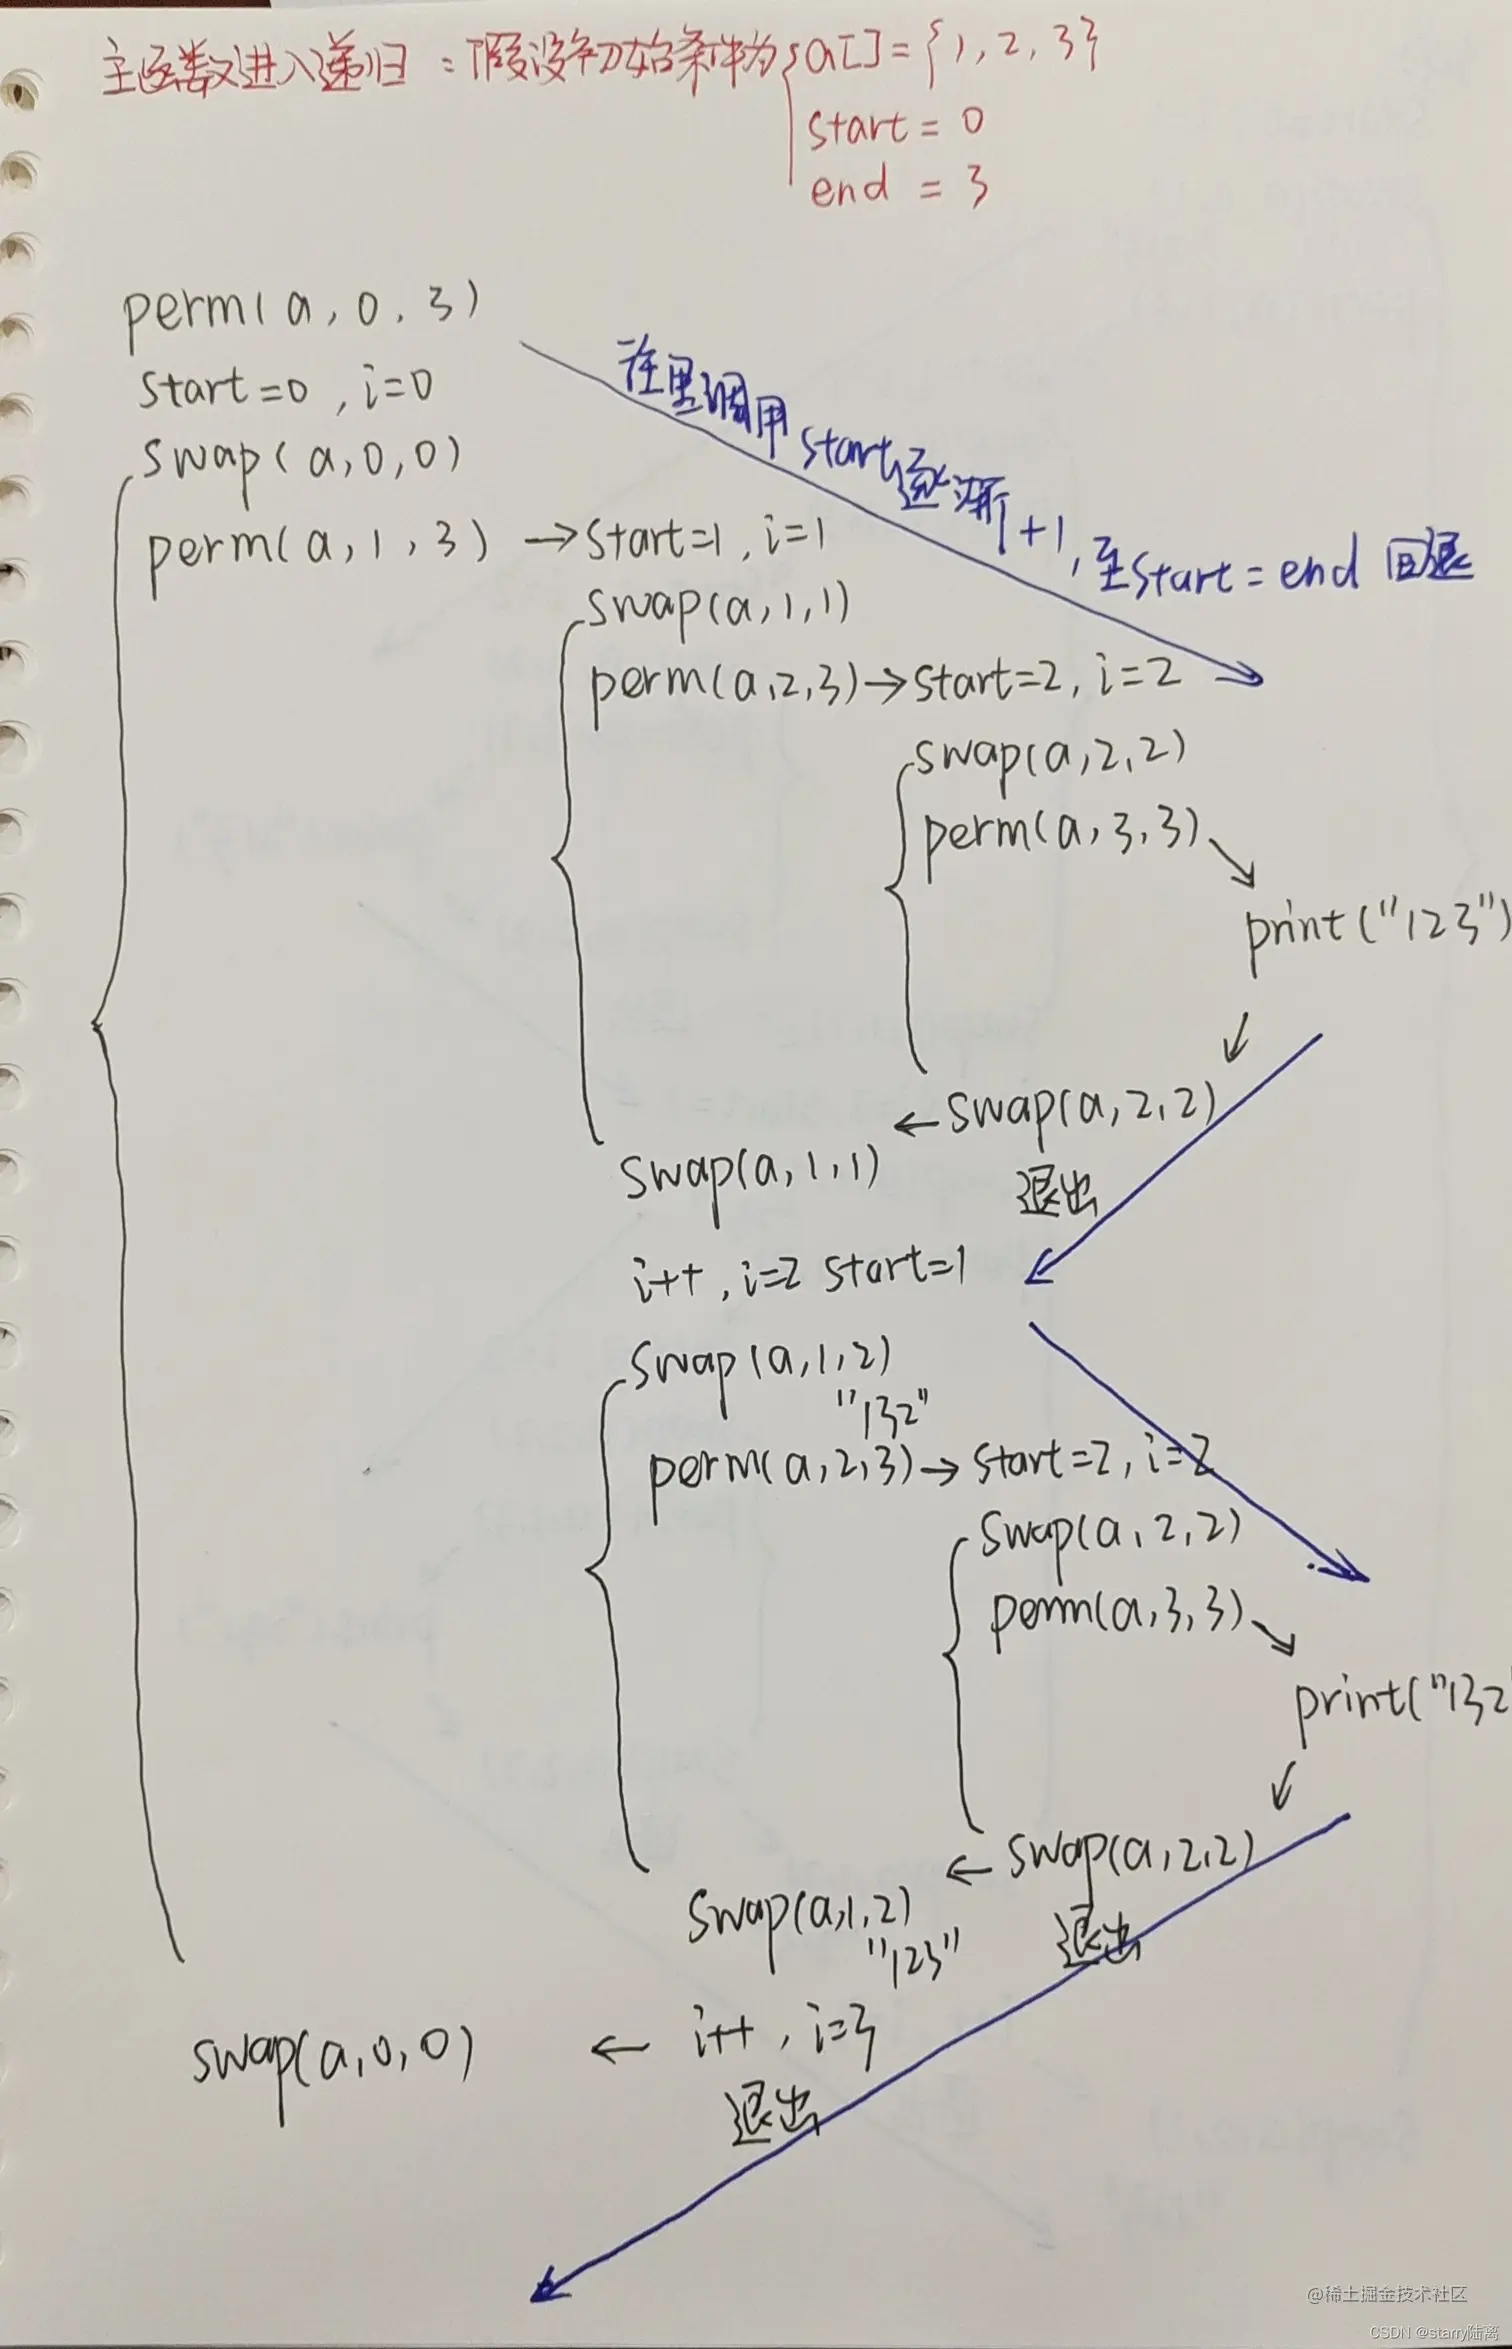 主函数进入递归：假设初始条件为 a[]={1,2,3}
start = 0
end = 3
perm(a,0,3)
start=0,i=0
swap(a,0,0)
往里调用start逐渐+1,至start=end 回退
perm(a,1,3) → start=1,i=1
swap(a,1,1)
perm(a,2,3) → start=2,i=2
swap(a,2,2)
perm(a,3,3)
print("123")
← swap(a,2,2)
退出
swap(a,1,1)
i++,i=2 start=1
swap(a,1,2)
"132"
perm(a,2,3) → start=2,i=2
swap(a,2,2)
perm(a,3,3)
print("132
← swap(a,2,2)
退出
swap(a,1,2)
"123"
swap(a,0,0) ← i++,i=3
退出
@稀土掘金技术社区
CSDN @starry陆离